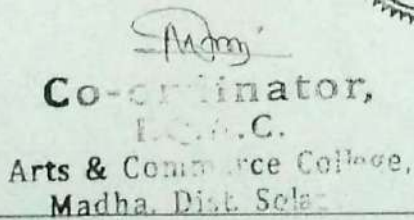 Co-ordinator,
I.Q.A.C.
Arts & Commerce College,
Madha, Dist.